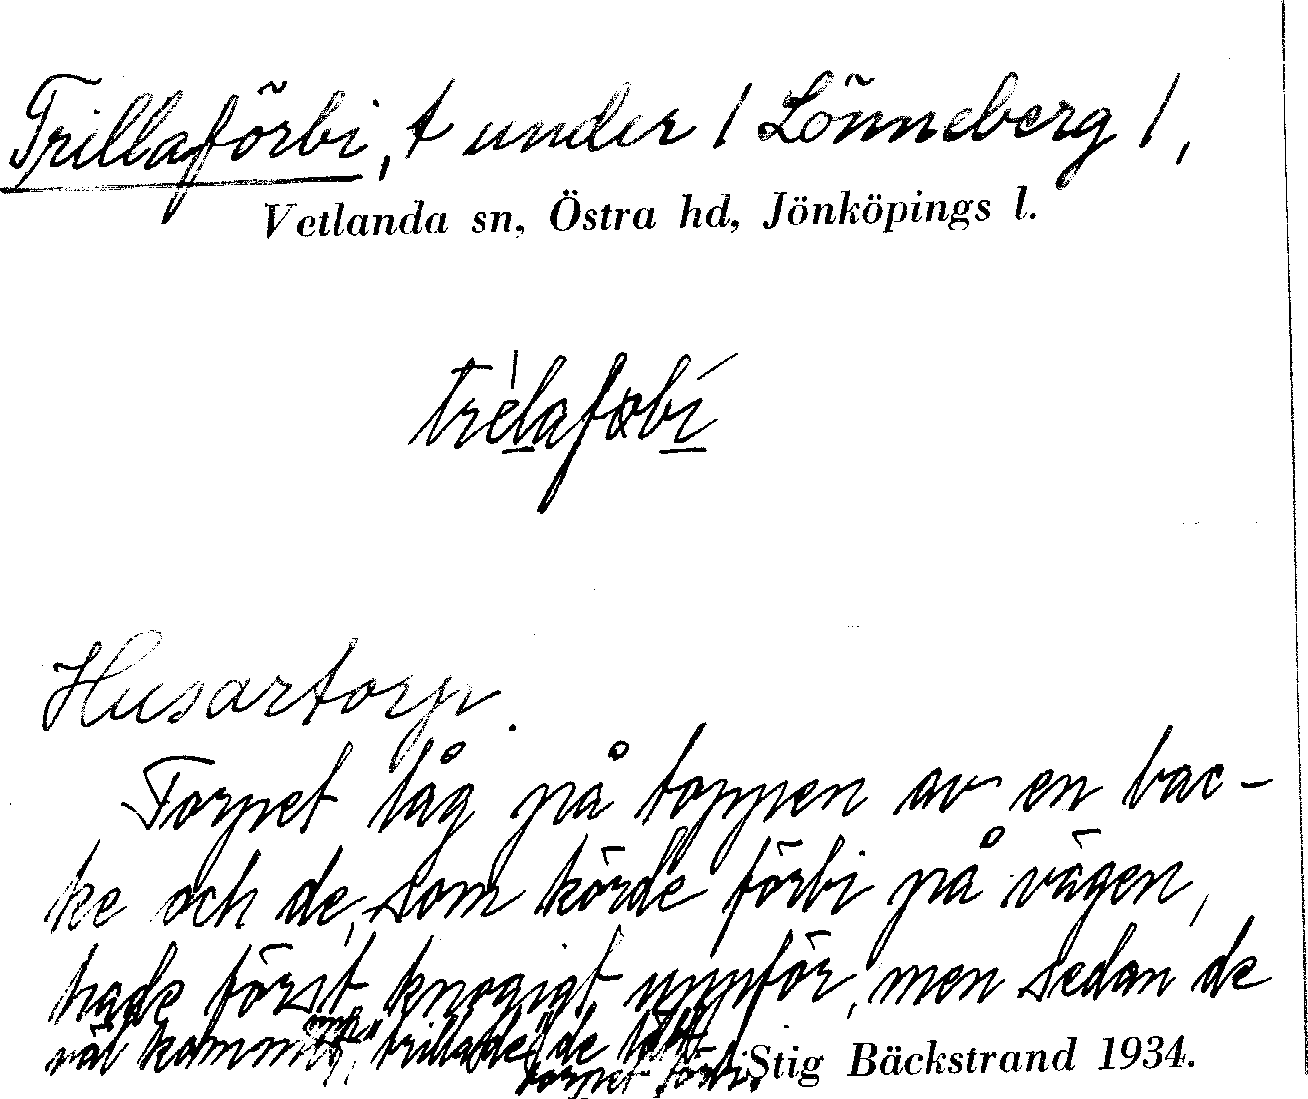 Trillaförbi, t under / Lönneberg /,
Vetlanda sn, Östra hd, Jönköpings l.
trèlafəbí
Husartorp.
Torpet låg på toppen av en bac-
ke och de, som körde förbi på vägen,
hade först knogigt uppför, men sedan de
väl kommit upp, "trillade" de lätt
torpet förbi.
Stig Bäckstrand 1934.